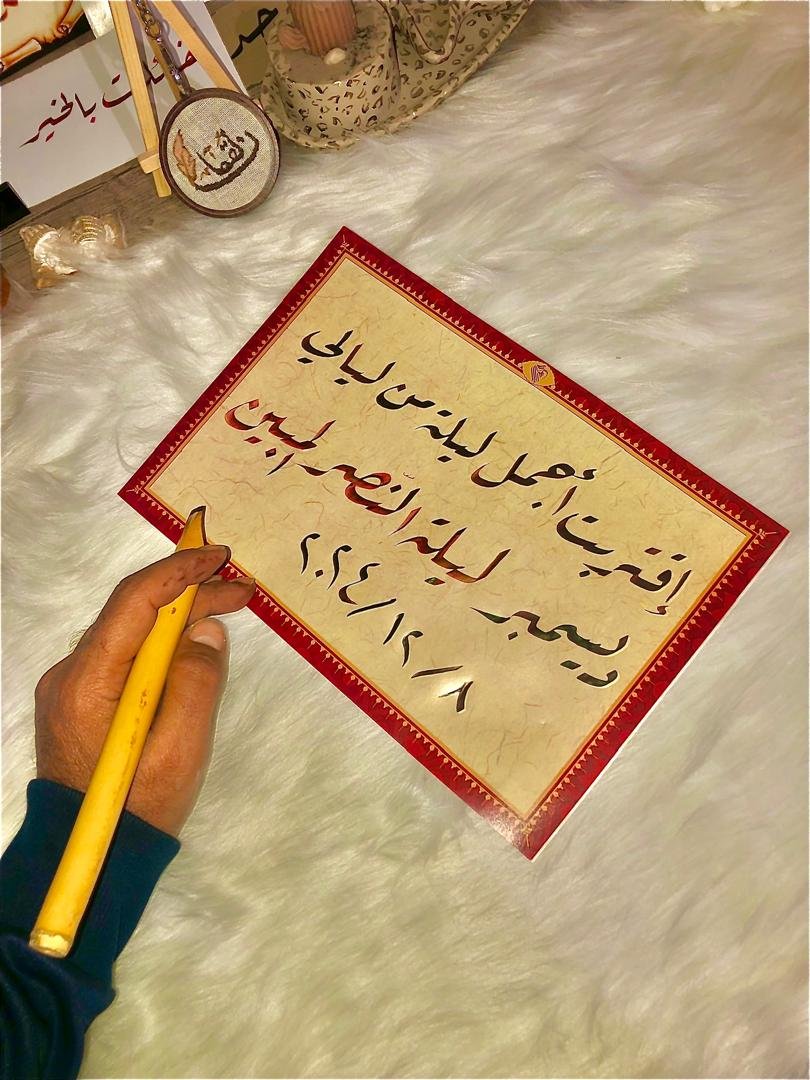 إقتربت أجمل ليلة من ليالي
ديسمبر ليلة النّصر المبين
٢٠٢٤/١٢/٨
بالخير